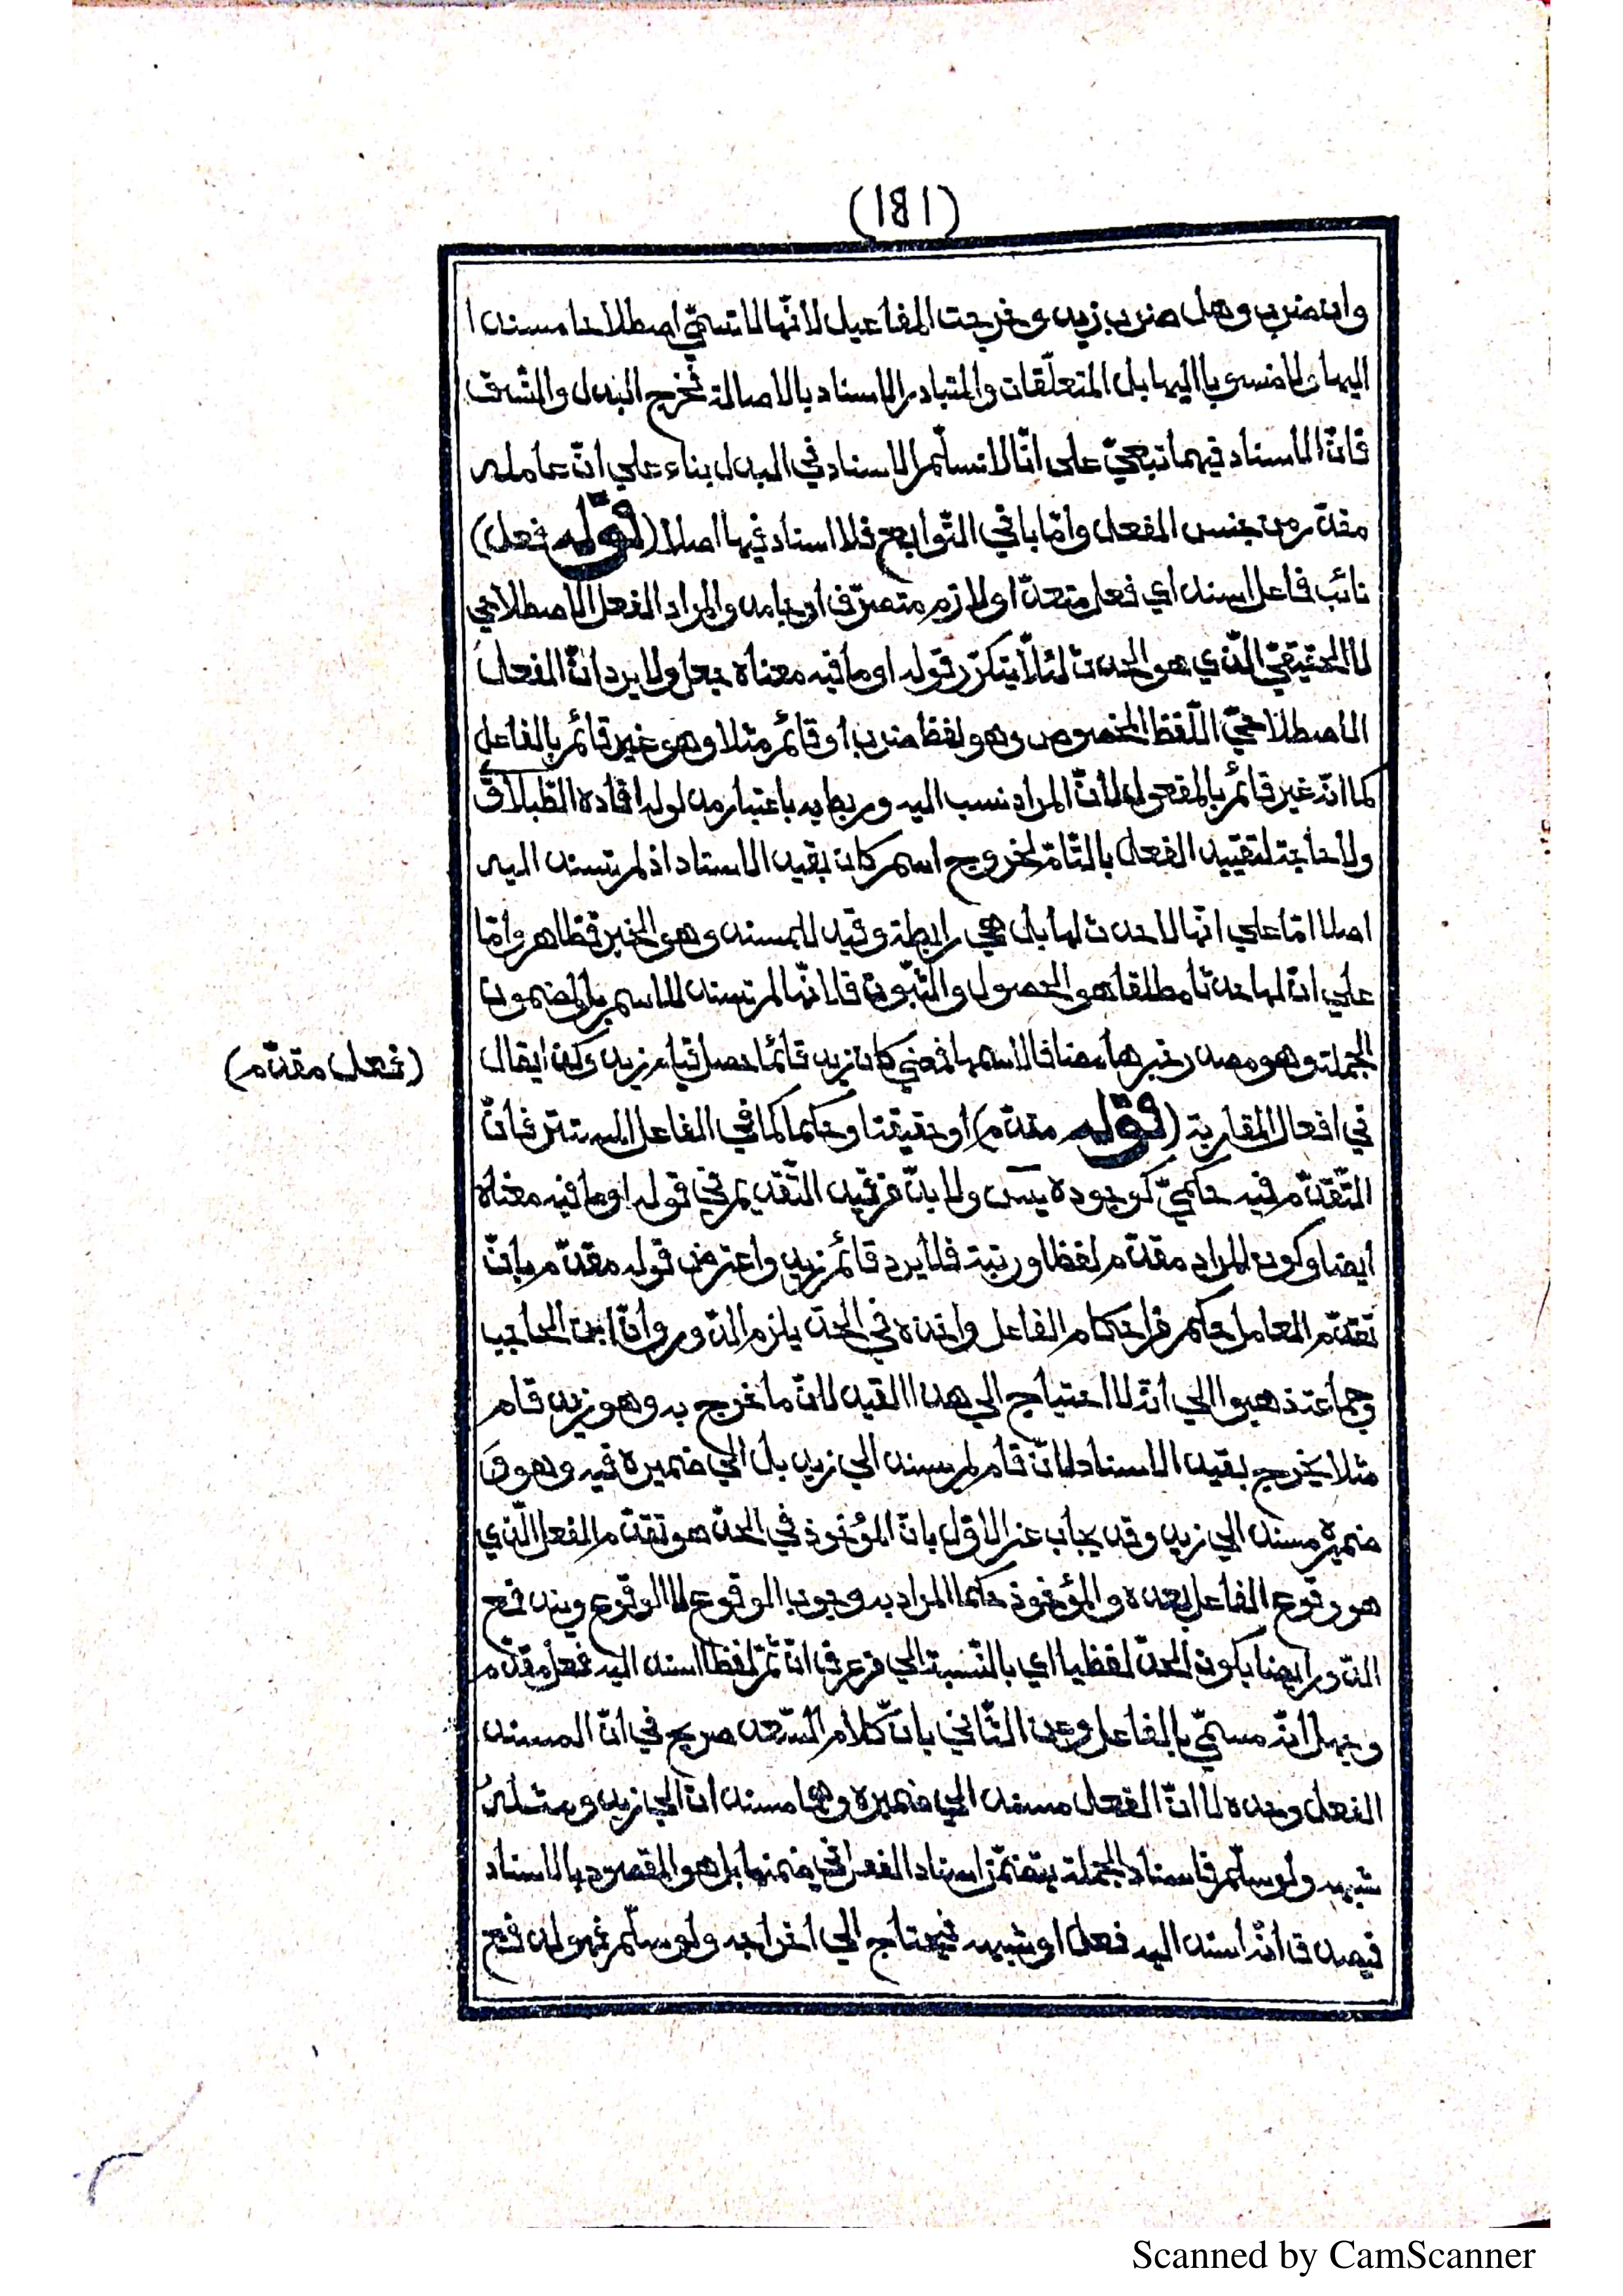 (181)
وان ضرب وهل ضرب زيد وخرجت المفاعيل لانّها لا تسمّي اصطلاحا مسندا
اليها ولا منسوبا اليها بل المتعلّقات والمتبادر الاسناد بالاصالة فخرج البدل والنّسق
فانّ الاسناد فيهما تبعيّ على انّا لا نسلّم الاسناد في البدل بناء علي انّ عامله
مقدّر من جنس الفعل وامّا باقي التّوابع فلا اسناد فيها اصلا (قوله فعل)
نائب فاعل اسند اي فعل متعدّ او لازم متصرّف او جامد والمراد الفعل الاصطلاحي
لا الحقيقيّ الّذي هو الحدث لئلّا يتكرّر قوله او ما فيه معناه بفعل ولا يرد انّ الفعل
الاصطلاحيّ اللّفظ المخصوص وهو لفظ ضرب او قائم مثلا وهو غير قائم بالفاعل
كما انّه غير قائم بالمفعول لانّ المراد نسب اليه وربط به باعتبار مدلوله افاده الطّبلاوّي
ولا حاجة لتقييد الفعل بالتّامّ لخروج اسم كان بقيد الاسناد اذ لم تسند اليه
اصلا امّا علي انّها لا حدث لها بل هي رابطة وقيد للمسند وهو الخبر فظاهر وامّا
علي انّ لها حدثا مطلقا هو الحصول والثّبوت فلانّها لم تسند للاسم بل لمضمون
الجملة وهو مصدر خبرها مضافا لاسمها فمعني كان زيد قائما حصل قيام زيد وكذا يقال
(فعل مقدّم)
في افعال المقاربة (قوله مقدّم) او حقيقتا وحكما كما في الفاعل المستتر فانّ
التّقدّم فيه حكميّ كوجوده يس ولا بدّ من قيد التّقديم في قوله او ما فيه معناه
ايضا وكون المراد مقدّم لفظا ورتبة فلا يرد قائم زيد واعترض قوله مقدّم بانّ
تقدّم العامل حكم من احكام الفاعل واخذه في الحدّ يلزم الدّور وانّ ابن الحاجب
وجماعة ذهبوا الي انّه لا احتياج الي هذا القيد لانّ ما خرج به وهو زيد قام
مثلا يخرج بقيد الاسناد لانّ قام لم يسند الي زيد بل الي ضميره فيه وهو مَع
ضميره مسند الي زيد وقد يجاب عن الاوّل بانّ المؤخوذ في الحدّ هو تقدّم الفعل الّذي
هو وقوع الفاعل بعده والمؤخوذ حكما المراد به وجوب الوقوع لا الوقوع ويندفع
الدّور ايضا بكون الحدّ لفظيا اي بالنّسبة الي من عرف انّ ثمّ لفظا اسند اليه فعل مقدّم
وجهل انّه مسمّي بالفاعل وعن الثّاني بانّ كلام السّعد صريح في انّ المسند
الفعل وحده لا انّ الفعل مسند الي ضميره وهما مسندان الي زيد ومثله
شبهه ولو سلّم فاسناد الجملة يتضمّن اسناد الفعل في ضمنها بل هو المقصود بالاسناد
فيصدق انّه اسند اليه فعل او شبهه فيحتاج الي اخراجه ولو سلّم فهو لدفع
Scanned by CamScanner